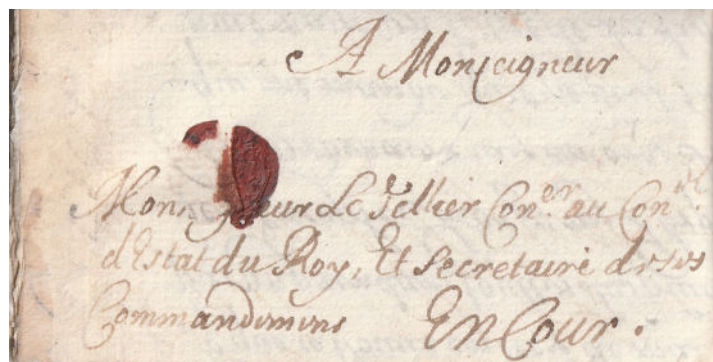 A Monseigneur
Monseigneur Le Tellier Con.er au Con.el
d'Estat du Roy, Et Secretaire de ses
Commandemens En Cour.